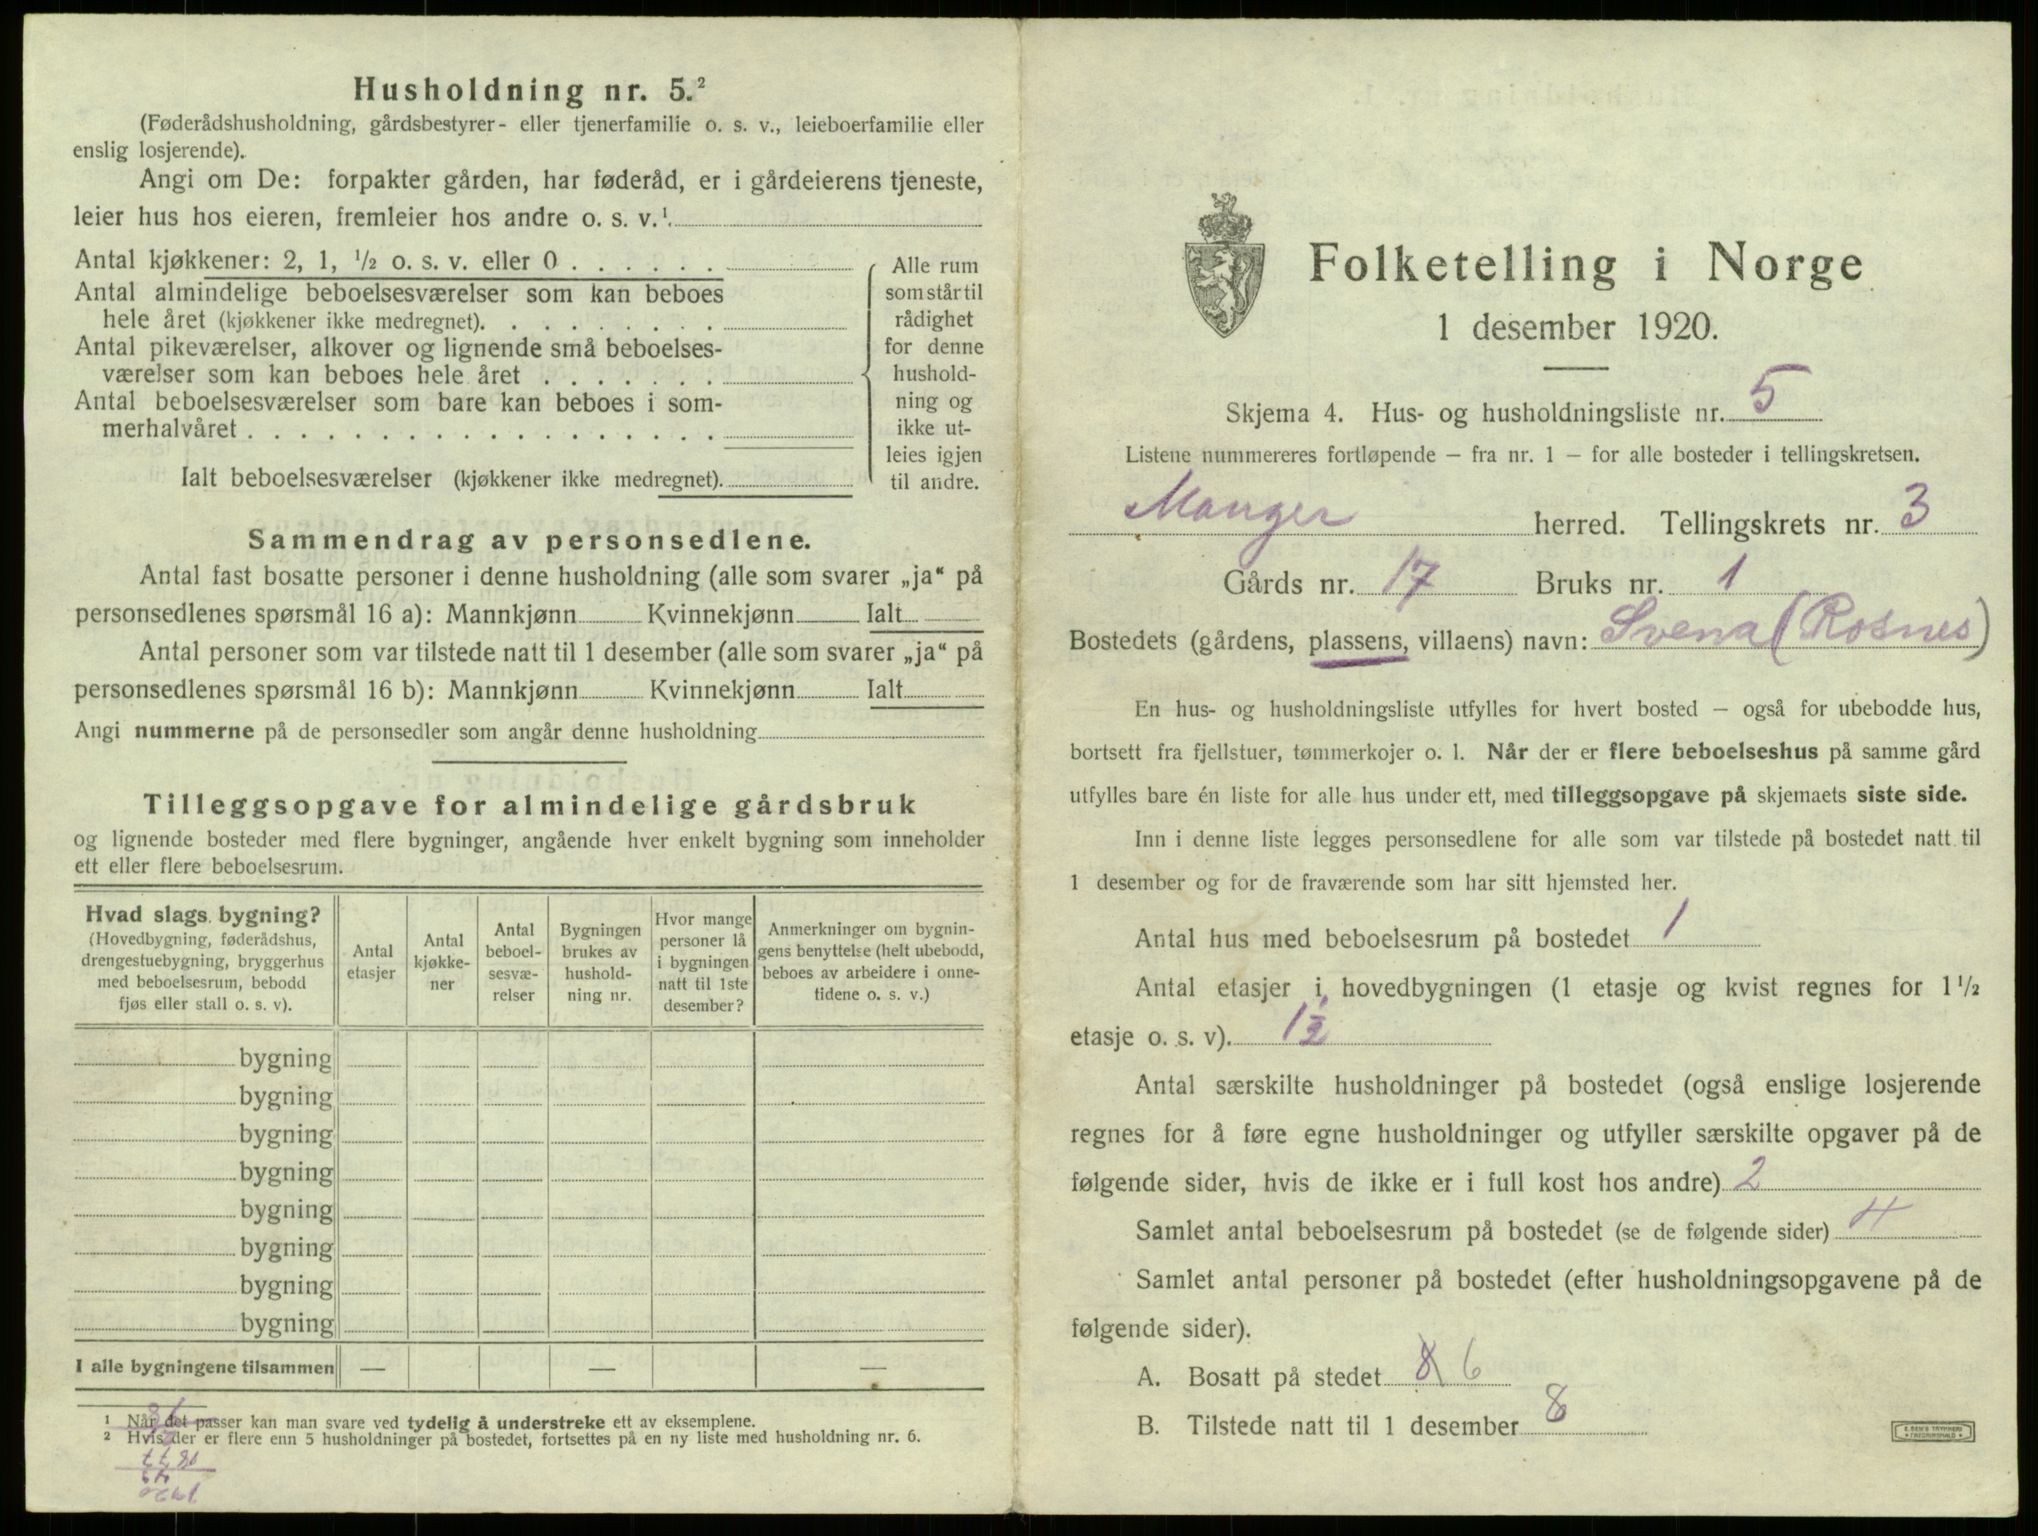 Husholdning nr. 5.²
(Føderådshusholdning, gårdsbestyrer- eller tjenerfamilie o. s. v., leieboerfamilie eller
enslig losjerende).
Angi om De: forpakter gården, har føderåd, er i gårdeierens tjeneste,
leier hus hos eieren, fremleier hos andre o. s. v.¹.
Antal kjøkkener: 2, 1, ½ o. s. v. eller 0
Antal almindelige beboelsesværelser som kan beboes
hele året (kjøkkener ikke medregnet).
Antal pikeværelser, alkover og lignende små beboelses-
værelser som kan beboes hele året
Antal beboelsesværelser som bare kan beboes i som-
merhalvåret
Ialt beboelsesværelser (kjøkkener ikke medregnet).
Alle rum
som står til
rådighet
for denne
hushold-
ning og
ikke ut-
leies igjen
til andre.
Sammendrag av personsedlene.
Antal fast bosatte personer i denne husholdning (alle som svarer „ja“ på
personsedlenes spørsmål 16 a): Mannkjønn Kvinnekjønn Ialt
Antal personer som var tilstede natt til 1 desember (alle som svarer „ja“ på
personsedlenes spørsmål 16 b): Mannkjønn Kvinnekjønn Ialt
Angi nummerne på de personsedler som angår denne husholdning
Tilleggsopgave for almindelige gårdsbruk
og lignende bosteder med flere bygninger, angående hver enkelt bygning som inneholder
ett eller flere beboelsesrum.
Hvad slags bygning?
(Hovedbygning, føderådshus,
drengestuebygning, bryggerhus
med beboelsesrum, bebodd
fjøs eller stall o. s. v).
Antal
etasjer
Antal
kjøkke-
ner
Antal
beboel-
sesvæ-
relser
Bygningen
brukes av
hushold-
ning nr.
Hvor mange
personer lå
i bygningen
natt til 1ste
desember?
Anmerkninger om bygnin-
gens benyttelse (helt ubebodd,
beboes av arbeidere i onne-
tidene o. s. v.)
bygning
bygning
bygning
bygning
bygning
bygning
bygning
bygning
I alle bygningene tilsammen — — —
¹ Når det passer kan man svare ved tydelig å understreke ett av eksemplene.
² Hvis der er flere enn 5 husholdninger på bostedet, fortsettes på en ny liste med husholdning nr. 6.
Folketelling i Norge
1 desember 1920.
Skjema 4. Hus- og husholdningsliste nr. 5
Listene nummereres fortløpende – fra nr. 1 – for alle bosteder i tellingskretsen.
Manger herred. Tellingskrets nr. 3
Gårds nr. 17 Bruks nr. 1
Bostedets (gårdens, plassens, villaens) navn: Svena (Rosnes)
En hus- og husholdningsliste utfylles for hvert bosted – også for ubebodde hus,
bortsett fra fjellstuer, tømmerkojer o. l. Når der er flere beboelseshus på samme gård
utfylles bare én liste for alle hus under ett, med tilleggsopgave på skjemaets siste side.
Inn i denne liste legges personsedlene for alle som var tilstede på bostedet natt til
1 desember og for de fraværende som har sitt hjemsted her.
Antal hus med beboelsesrum på bostedet 1
Antal etasjer i hovedbygningen (1 etasje og kvist regnes for 1 ½
etasje o. s. v). 1½
Antal særskilte husholdninger på bostedet (også enslige losjerende
regnes for å føre egne husholdninger og utfyller særskilte opgaver på de
følgende sider, hvis de ikke er i full kost hos andre) 2
Samlet antal beboelsesrum på bostedet (se de følgende sider) 4
Samlet antal personer på bostedet (efter husholdningsopgavene på de
følgende sider).
A. Bosatt på stedet 8 6
B. Tilstede natt til 1 desember 8